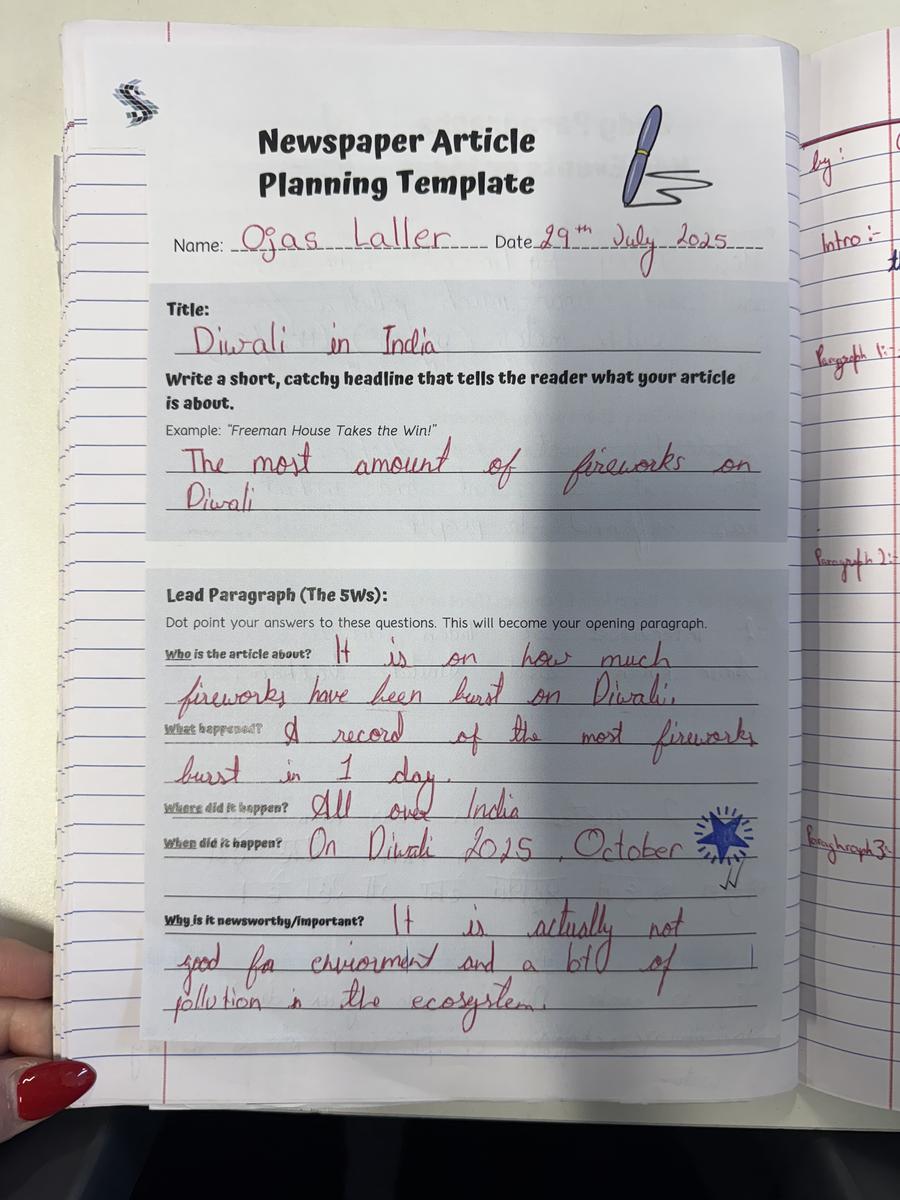 Newspaper Article
Planning Template
Name: Ojas Laller Date 29th July 2025
Title:
Diwali in India
Write a short, catchy headline that tells the reader what your article
is about.
Example: "Freeman House Takes the Win!"
The most amount of fireworks on
Diwali
Lead Paragraph (The 5Ws):
Dot point your answers to these questions. This will become your opening paragraph.
Who is the article about? It is on how much
fireworks have been burst on Diwali.
What happened? A record of the most fireworks
burst in 1 day.
Where did it happen? All over India
When did it happen? On Diwali 2025, October
Why is it newsworthy/important? It is actually not
good for and a of
pollution in the ecosystem.
by:
Intro:-
Paragraph 1:-
Paragraph 2:-
Paraghraph 3:-